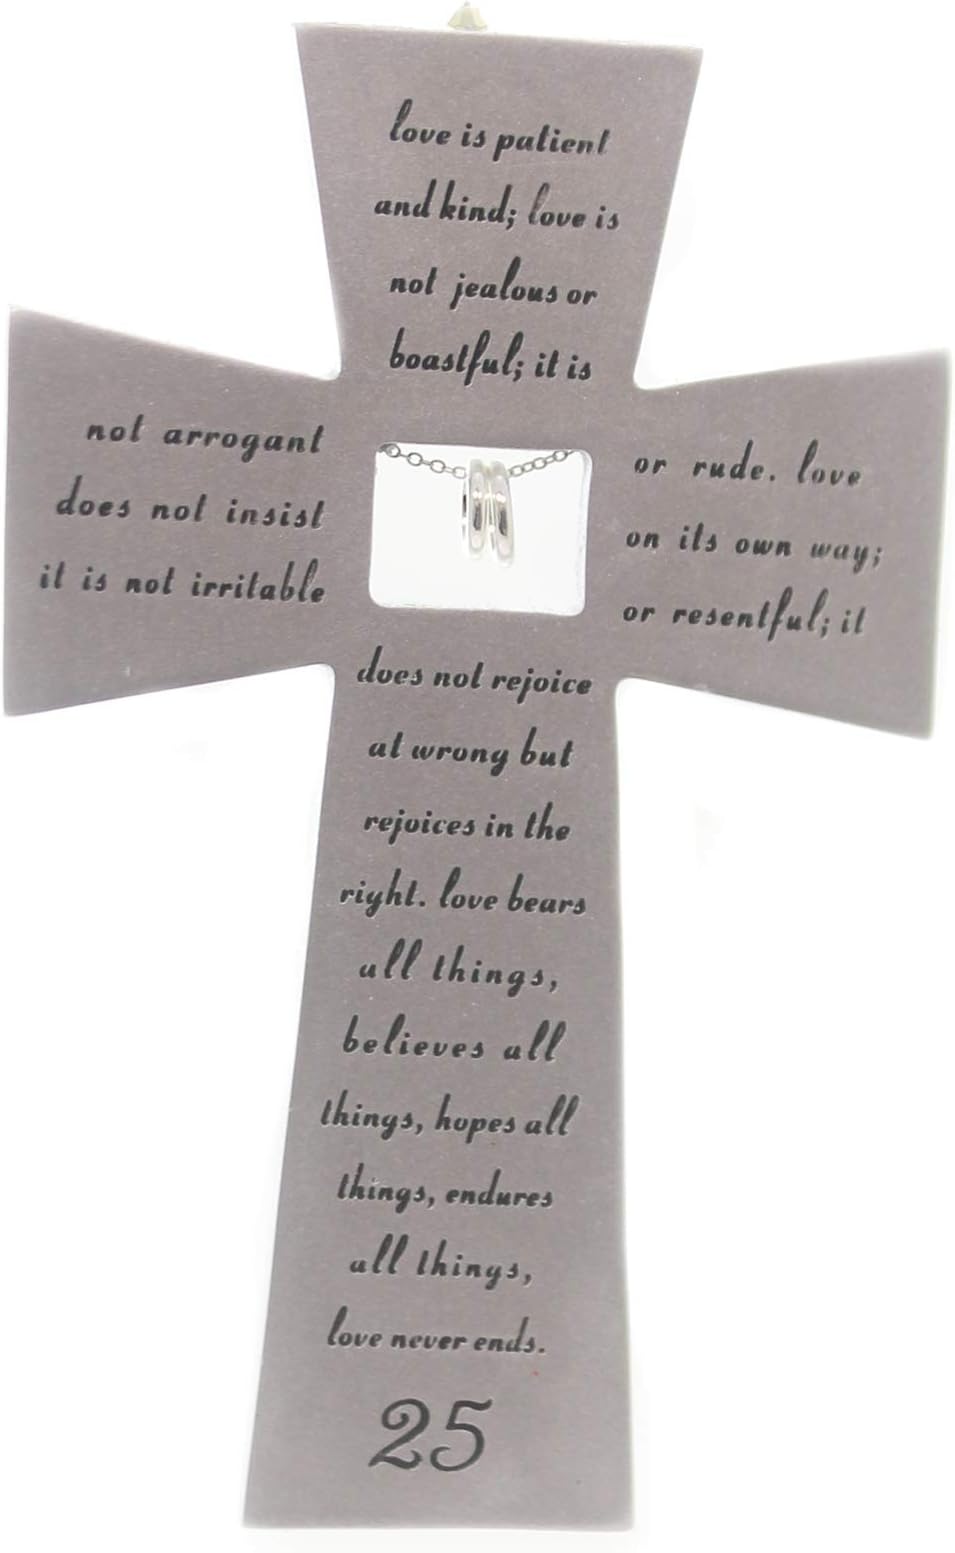 love is patient
and kind; love is
not jealous or
boastful; it is
not arrogant or rude. love
does not insist on its own way;
it is not irritable or resentful; it
does not rejoice
at wrong but
rejoices in the
right. love bears
all things,
believes all
things, hopes all
things, endures
all things,
love never ends.
25